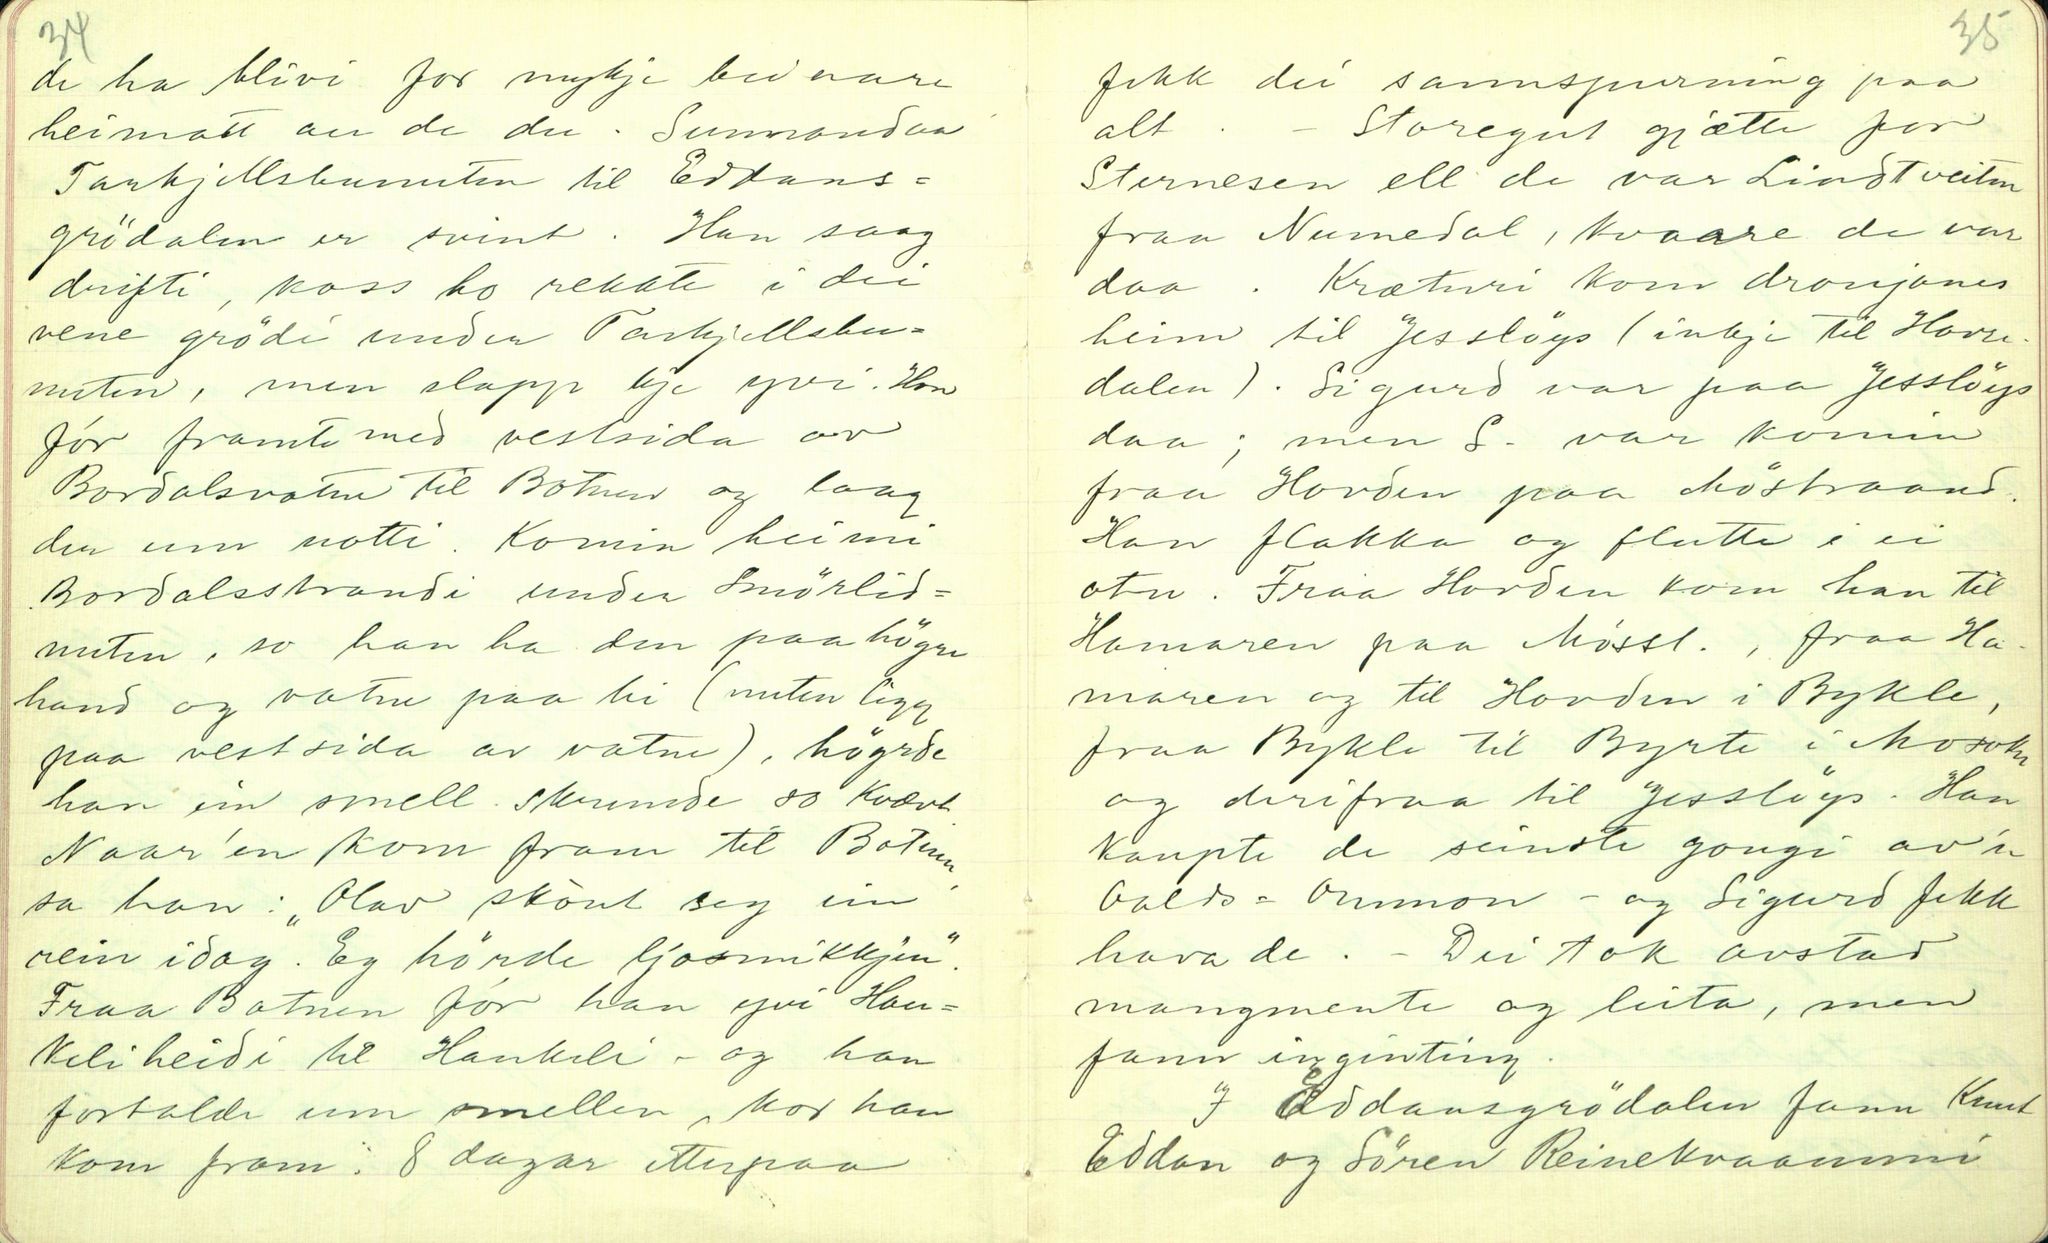 34
de ha blivi for mykje beinare
heimatt au de du. Sunnandaa
Tarkjellsbunuten til Eddans=
grödalen er svint. Han saag
drifti, koss ho rekste i dei
vene grödi under Tarkjellsbu=
nuten, men slapp kje yvi. Han
fór framte med vestsida av
Bordalsvatne til Botnen og laag
der um notti. Komin heim i
Bordalsstrandi under Smörlid=
nuten, so han ha den paa högre
hand og vatne paa hi (nuten ligg
paa vestsida av vatne), högrde
han ein smell. Skrumde so kvævt
Naar'en kom fram til Botnen,
sa han: „Olav skönt seg ein
rein idag. Eg hörde ljosmikkjen".
Fraa Botnen fór han yvi Hau=
keliheidi til Haukeli - og han
fortalde um smellen, kor han
kom fram. 8 dagar etterpaa
35
fekk dei sannspurning paa
alt. - Storegut gjætte for
Sternesen ell de var Lindtveiten
fraa Numedal, kvaare de var
daa. Kræturi kom dronjanes
heim til Jesslöys (inkje til Havre-
dalen). Sigurd var paa Jesslöys
daa; men S. var komin
fraa Hovden paa Möstraand.
Han flakka og flutte i ei
otu. Fraa Hovden kom han til
Hamaren paa Mösst., fraa Ha-
maren og til Hovden i Bykle,
fraa Bykle til Byrte i Mosokn
og derifraa til Jesslöys. Han
kaupte de seinste gongi av'n
Aalds=Aamon - og Sigurd fekk
hava de. - Dei tok avstad
mangmente og leita, men
fann inginting.
I Eddansgrödalen fann Knut
Eddan og Sören Reinekvaammi